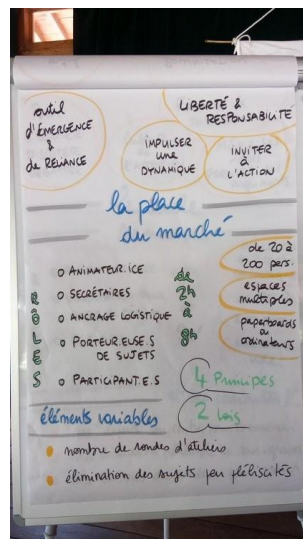 outil
d'ÉMERGENCE
&
de RELIANCE
LIBERTÉ &
RESPONSABILITÉ
IMPULSER
une
DYNAMIQUE
INVITER
à
L'ACTION
la place
du marché
de 20 à
200 pers.
espaces
multiples
paperboards
ou
ordinateurs
RÔLES
o ANIMATEUR.ICE
o SECRÉTAIRES
o ANCRAGE LOGISTIQUE
o PORTEUR.EUSE.S
DE SUJETS
o PARTICIPANT.E.S
de
2h
à
8h
4 Principes
2 Lois
éléments variables
nombre de rondes d'ateliers
élimination des sujets peu plébiscités